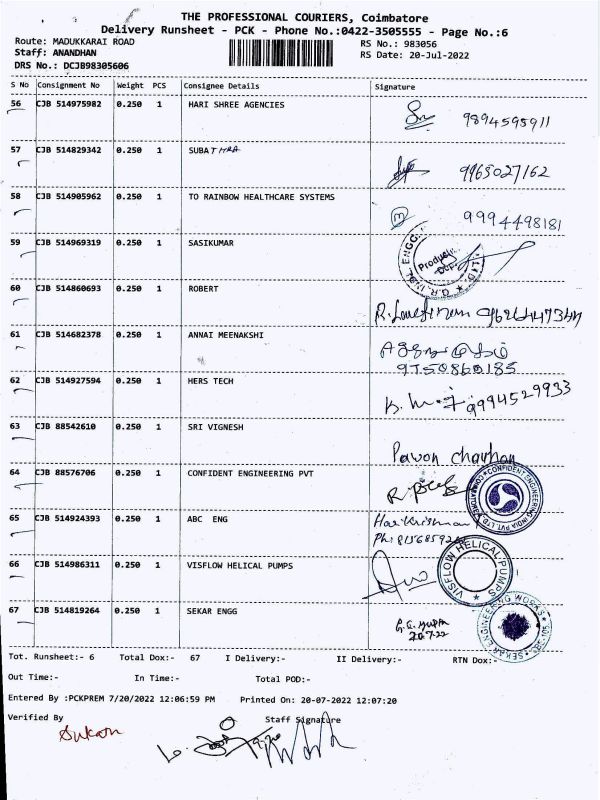 THE PROFESSIONAL COURIERS, Coimbatore
Delivery Runsheet - PCK - Phone No.:0422-3505555 - Page No.:6
Route: MADUKKARAI ROAD RS No.: 983056
Staff: ANANDHAN RS Date: 20-Jul-2022
DRS No.: DCJB98305606
S No Consignment No Weight PCS Consignee Details Signature
56 CJB 514975982 0.250 1 HARI SHREE AGENCIES
9894595911
57 CJB 514829342 0.250 1 SUBATHRA
9965027162
58 CJB 514905962 0.250 1 TO RAINBOW HEALTHCARE SYSTEMS
9994498181
59 CJB 514969319 0.250 1 SASIKUMAR
60 CJB 514860693 0.250 1 ROBERT
61 CJB 514682378 0.250 1 ANNAI MEENAKSHI
9750860185
62 CJB 514927594 0.250 1 HERS TECH
9994529933
63 CJB 88542610 0.250 1 SRI VIGNESH
Pawon chauhan
64 CJB 88576706 0.250 1 CONFIDENT ENGINEERING PVT
CONFIDENT ENGINEERING INDIA PVT. LTD. COIMBATORE
65 CJB 514924393 0.250 1 ABC ENG
Harikrishnan
66 CJB 514986311 0.250 1 VISFLOW HELICAL PUMPS
VISFLOW HELICAL PUMPS
67 CJB 514819264 0.250 1 SEKAR ENGG
SEKAR ENGINEERING WORKS
20.7.22
Tot. Runsheet:- 6 Total Dox:- 67 I Delivery:- II Delivery:- RTN Dox:-
Out Time:- In Time:- Total POD:-
Entered By :PCKPREM 7/20/2022 12:06:59 PM Printed On: 20-07-2022 12:07:20
Verified By Staff Signature